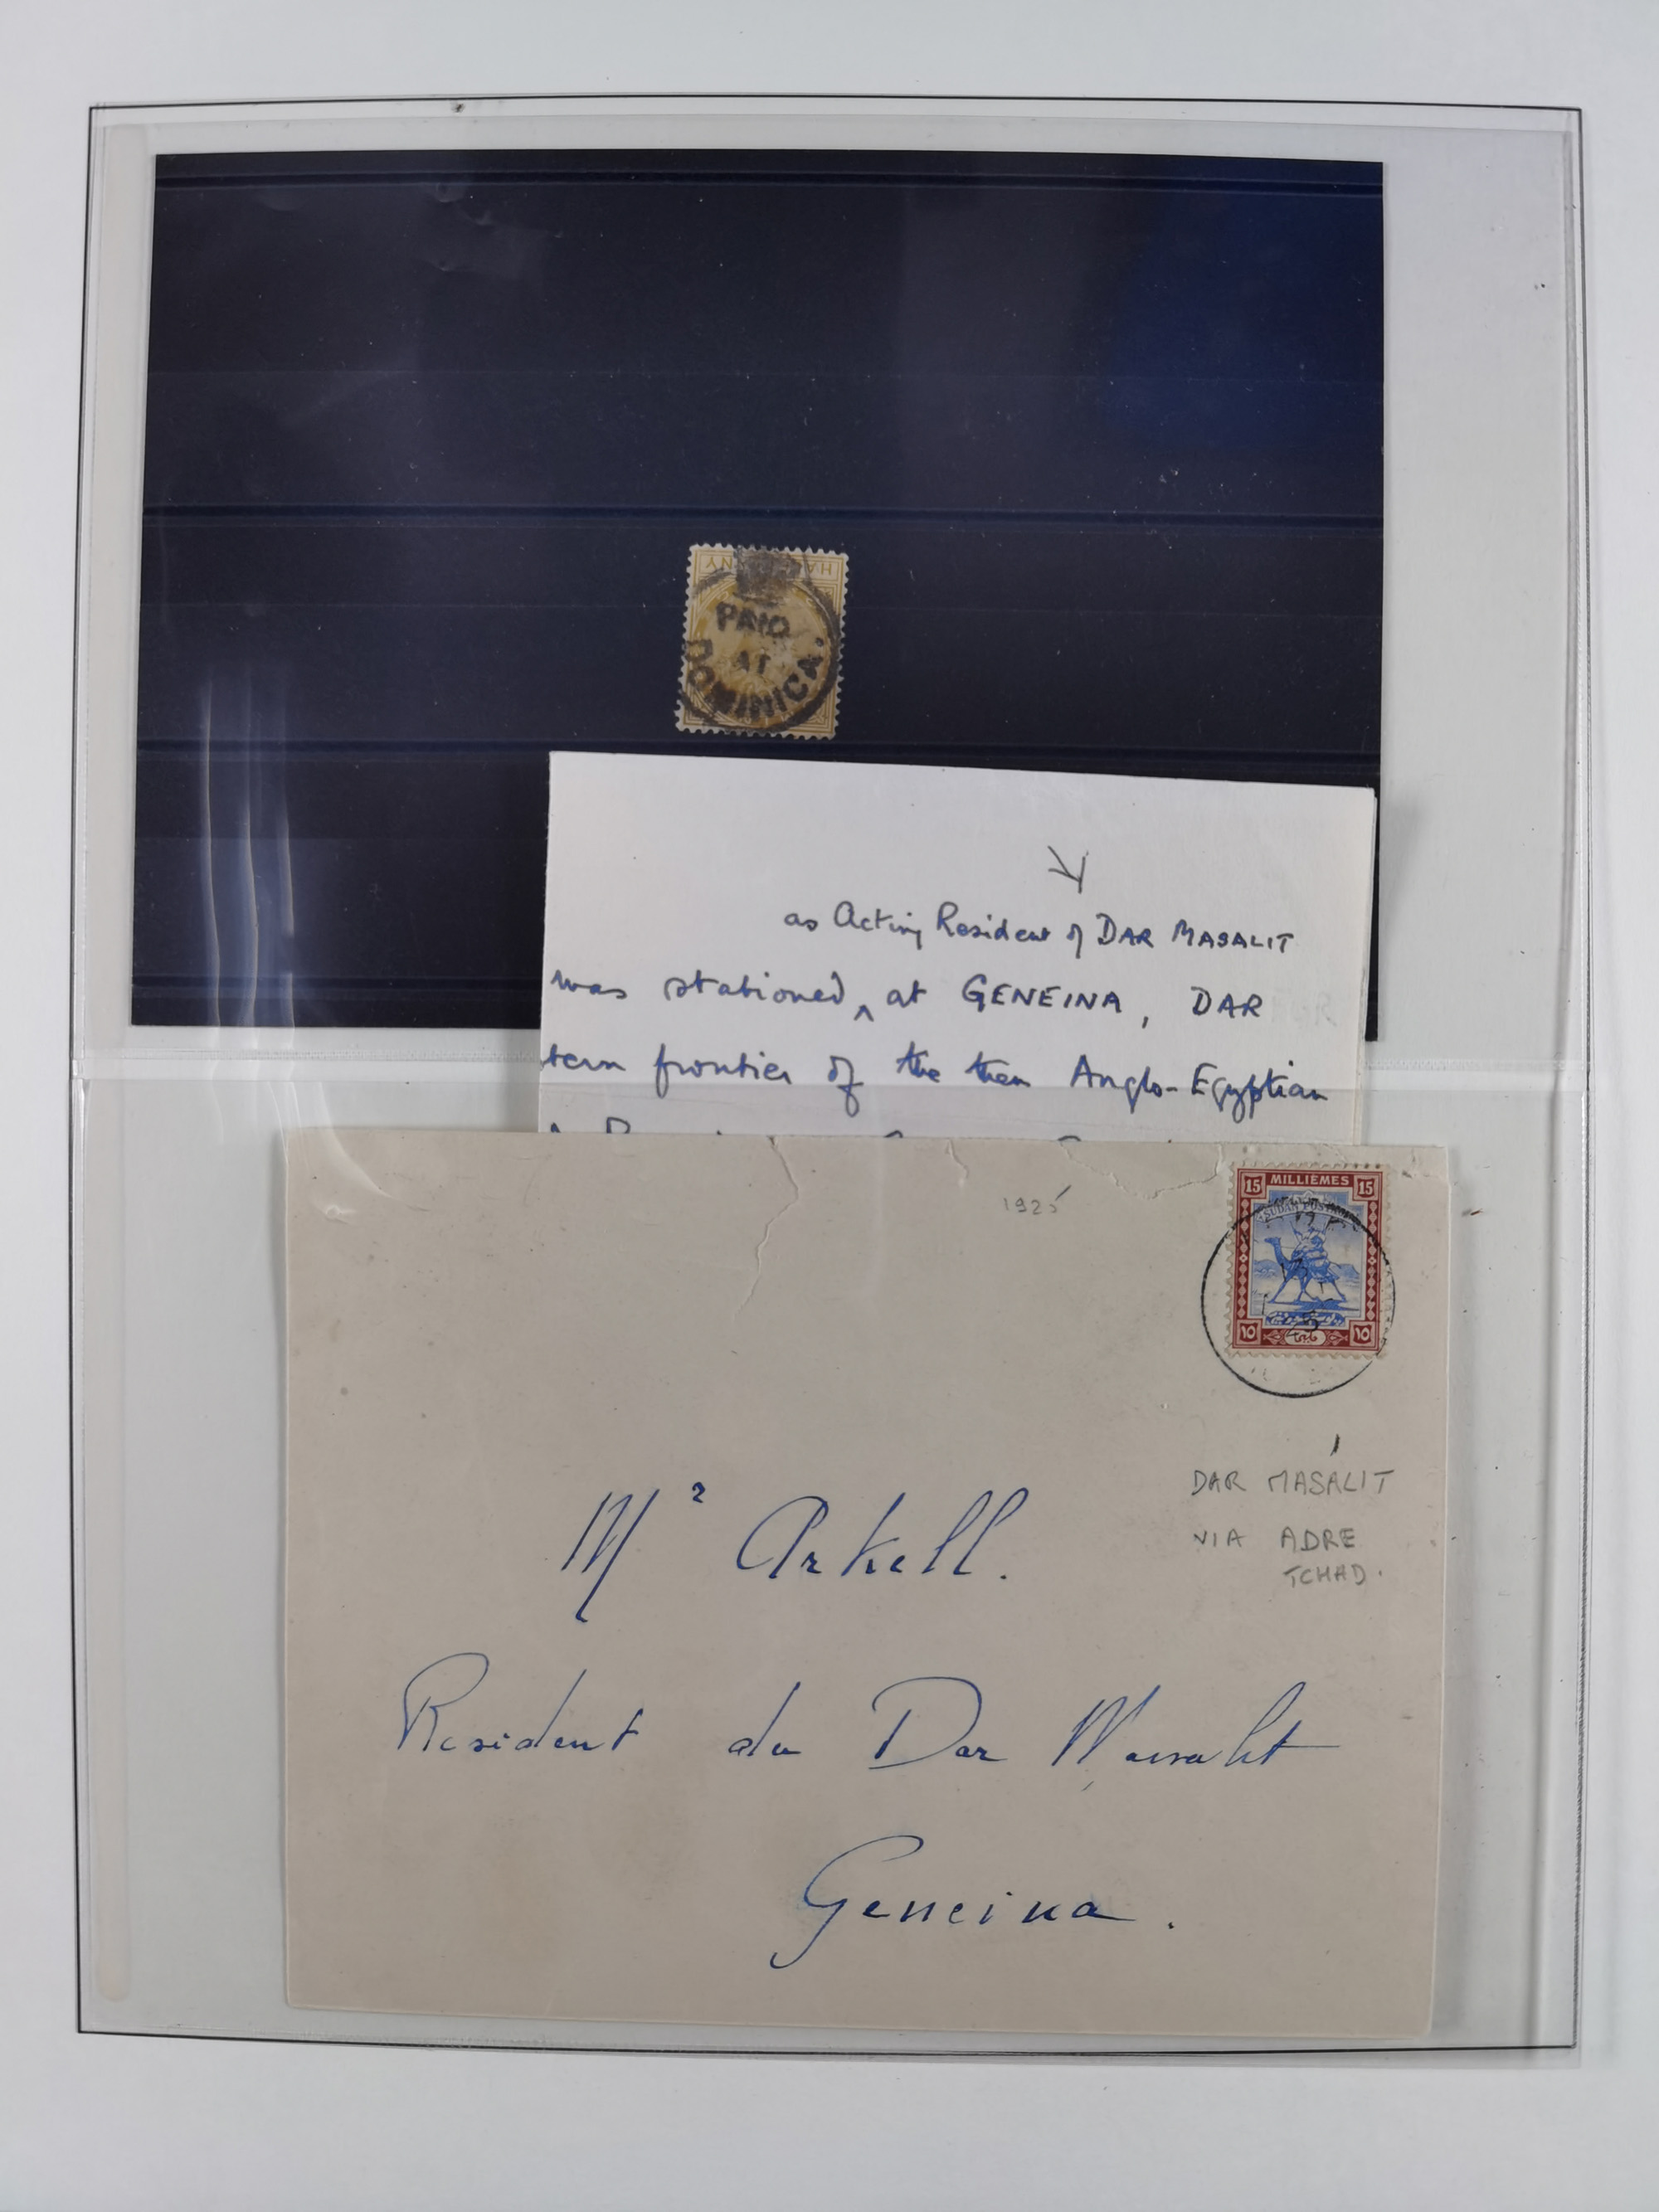 PAID
AT
DOMINICA.
as Acting Resident of DAR MASALIT
was stationed ^ at GENEINA, DAR
tern frontier of the then Anglo-Egyptian
1925
15 MILLIEMES 15
SUDAN POSTAGE
١٥ ١٥
DAR MASALIT
VIA ADRE
TCHAD.
Mr Arkell.
Resident du Dar Massalit
Geneina.